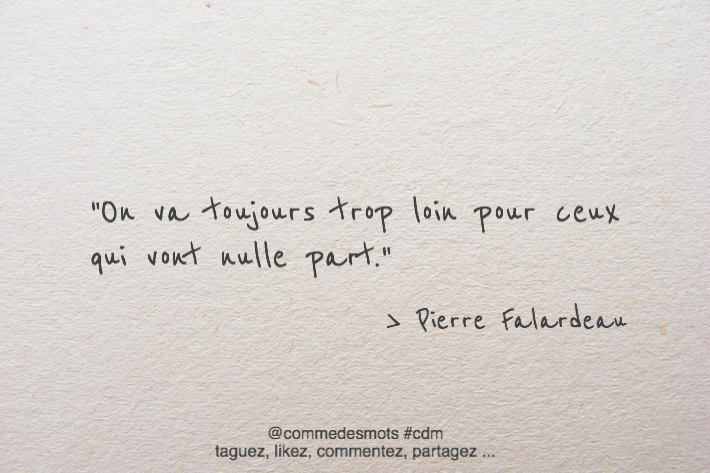 "On va toujours trop loin pour ceux
qui vont nulle part."
> Pierre Falardeau
@commedesmots #cdm
taguez, likez, commentez, partagez ...